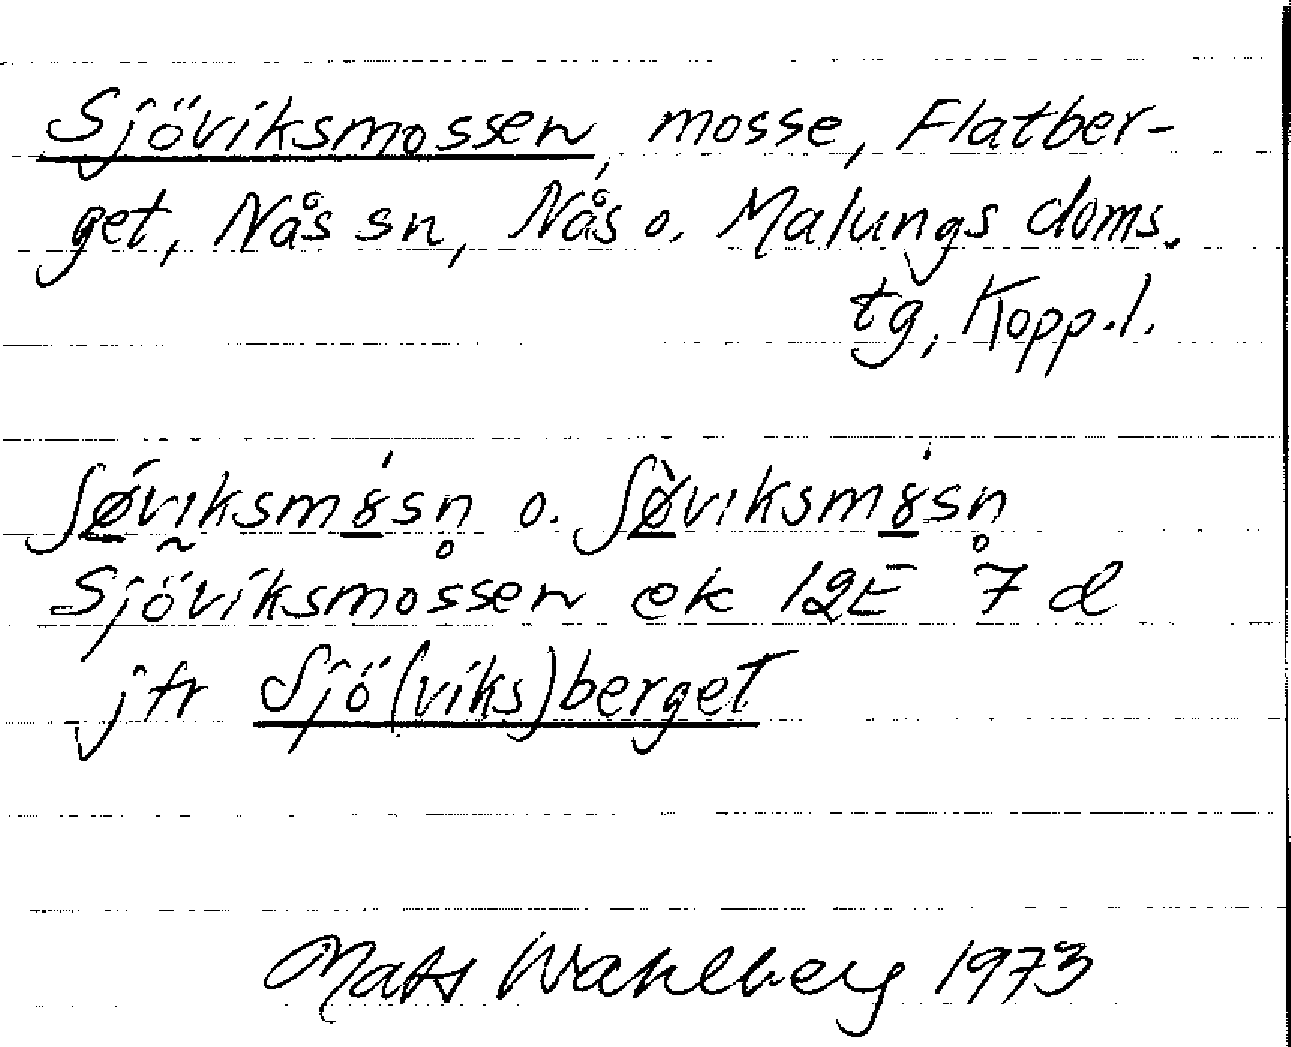 Sjöviksmossen, mosse, Flatber-
get, Nås sn, Nås o. Malungs doms.
tg, Kopp.l.
ʃǿ̱viksmɤ̱̍sn̥ o. ʃø̱̀viksmɤ̱̍sn̥
Sjöviksmossen ek 12E 7d
jfr Sjö(viks)berget
Mats Wahlberg 1973